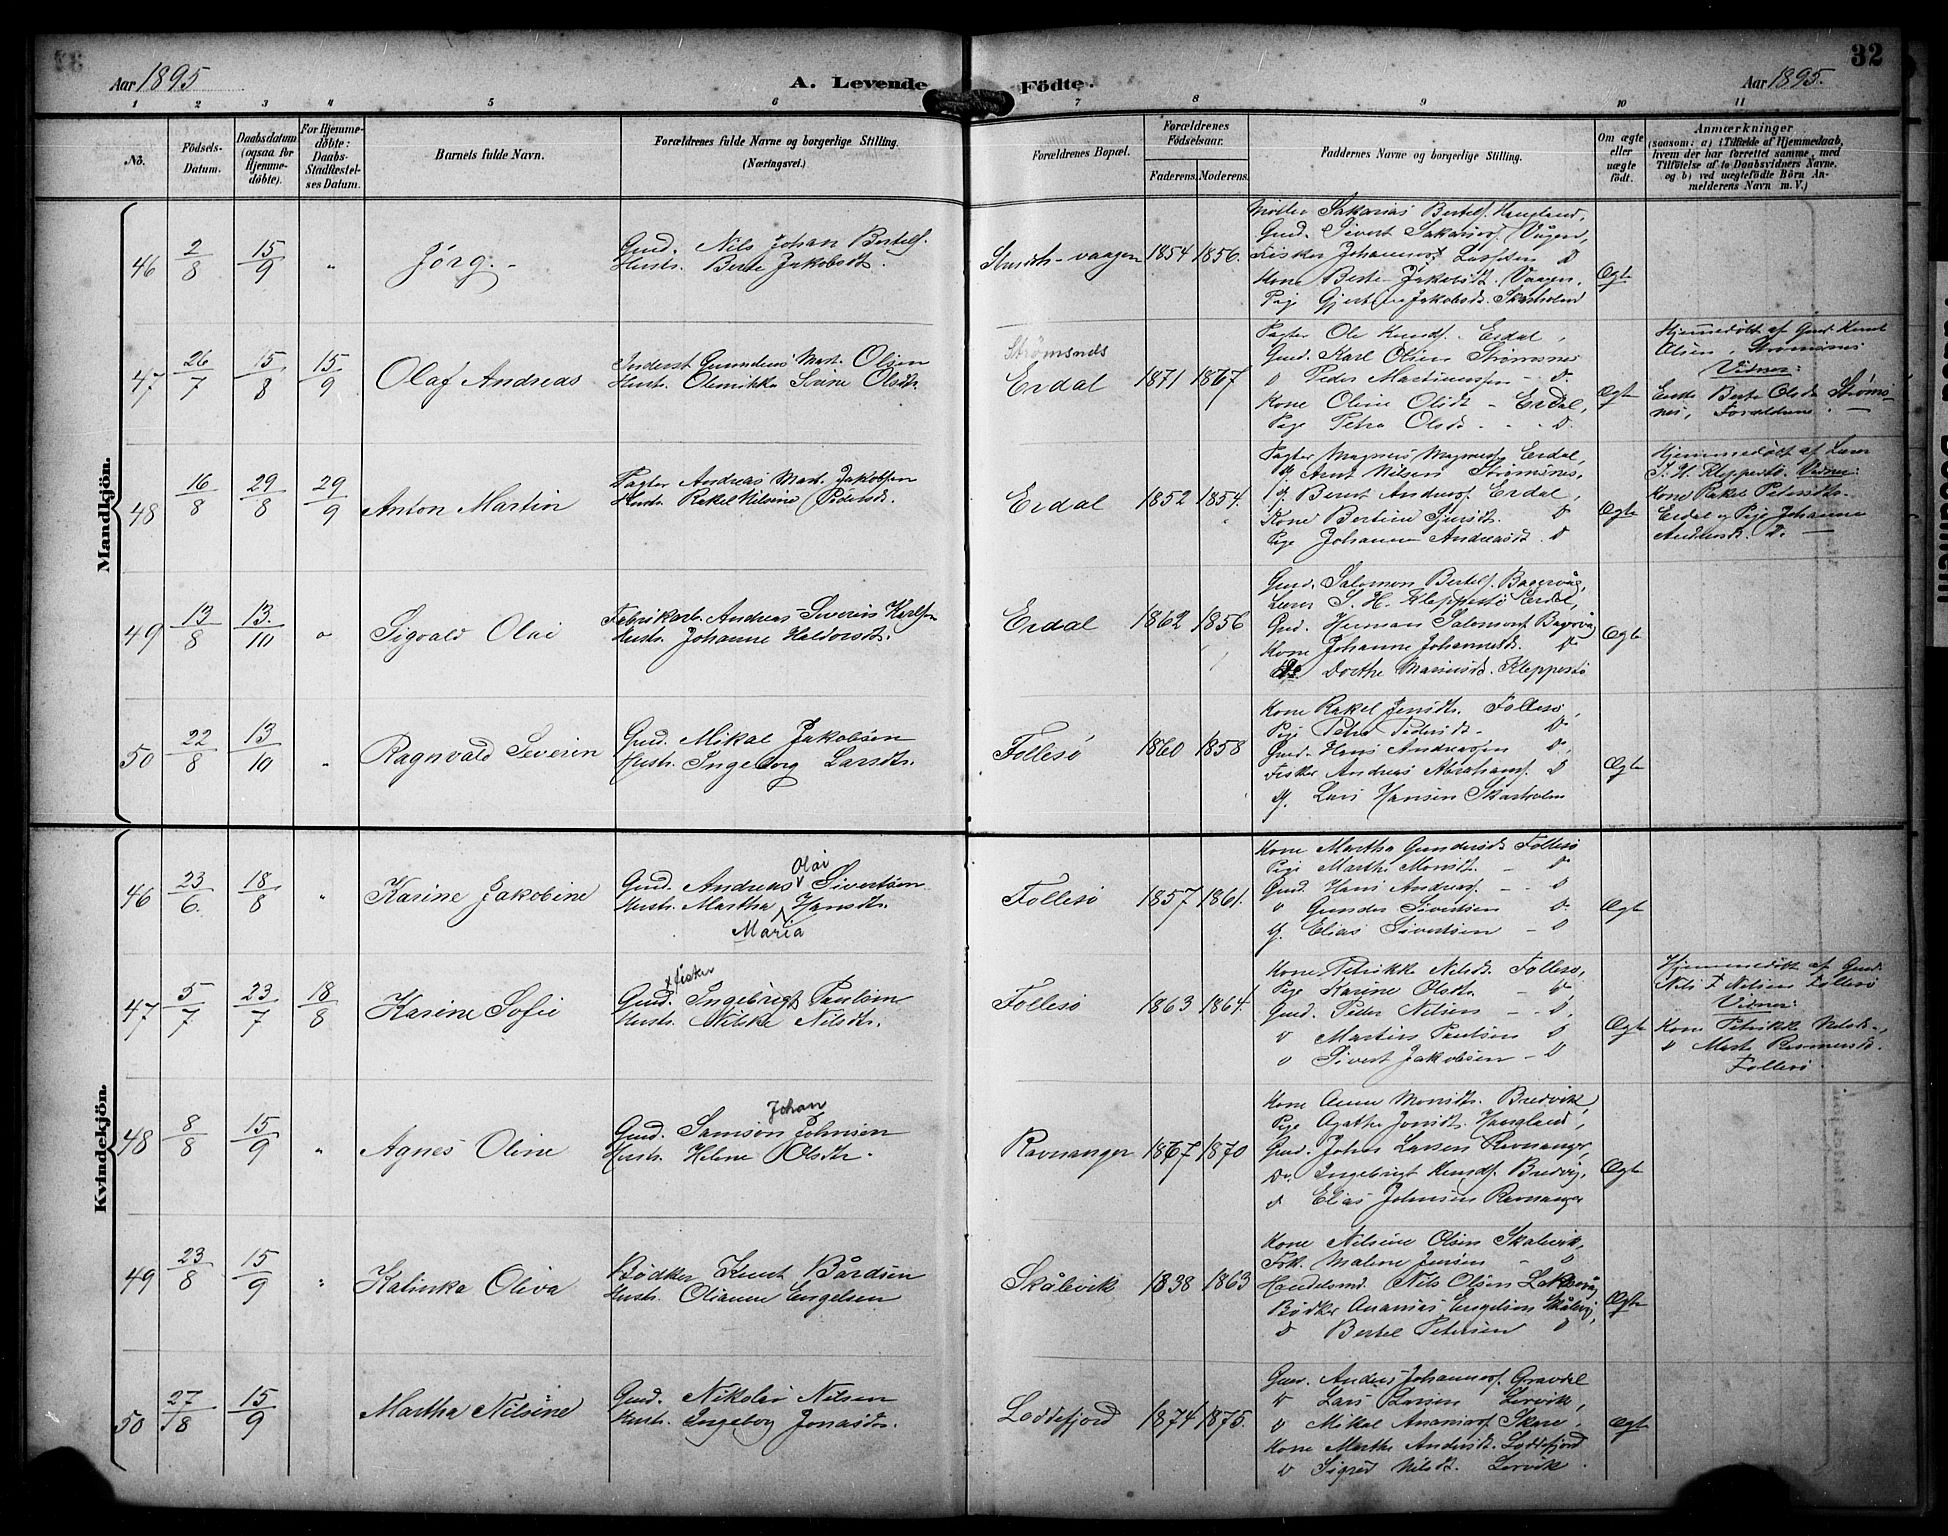 32
Aar 1895
A. Levende Födte.
Aar 1895.
1 2 3 4 5 6 7 8 9 10 11
No.
Födsels-Datum.
Daabsdatum (ogsaa for Hjemme-döbte).
For Hjemme-döbte: Daabs-Stadfæstel-ses Datum.
Barnets fulde Navn.
Forældrenes fulde Navne og borgerlige Stilling. (Næringsvei.)
Forældrenes Bopæl.
Forældrenes Födselsaar.
Faderens. Moderens.
Faddernes Navne og borgerlige Stilling.
Om ægte eller uægte födt.
Anmærkninger
(saasom: a) i Tilfælde af Hjemmedaab, hvem der har forrettet samme, med Tilföielse af to Daabsvidners Navne, og b) ved uægtefödte Börn An-melderens Navn m. V.)
Mandkjön.
46 2/8 15/9 " Jørg. -
Gmd. Nils Johan Bertels.
Hustr. Berte Jakobsdt.
1854 1856.
Sakarias Bertels. Haugland,
Gmd. Sivert Sakarias. Vågen,
Fisker Johannes Lassesen D
Kone Berte Jakobsdt. Vaagen,
Pige Jakobsdt. Skarholm
Ægte
47 26/7 15/8 15/9 Olaf Andreas
Inderst Gunnerius Mart. Olsen
Hustr. Olerikka Sirine Olsdtr.
Strømsnes
Erdal 1871 1867
Pagter Ole Knuds. Erdal,
Gmd. Karl Olsen Strømsnes
" Peder Martinussen - D.
Kone Oline Olsdt - Erdal,
Pige Petra Olsdt. - - D.
Ægte
Hjemmedøbt af Gmd. Knut
Olsen, Strømsnes
Vidner:
Enke Berte Olsdt. Strøms-
nes, Forældrene. -
48 16/8 29/8 29/9 Anton Martin
Pagter Andreas Mart. Jakobsen
Hustr. Rakel Nilsine Pedersdt.
Erdal 1852 1854.
Pagter Magnus Magnus. Erdal,
do Arnt Nilsen Strømsnes,
g. Bernt Anders. Erdal,
Kone Bertine Sjursdt. D
Pige Johanne Andreasdt. D
Ægte
Hjemmedøbt af Lærer
S. H. Kleppestø. Vidner:
Kone Rakel Petersdtr.
Erdal og Pige Johanne
Andersdt. D. -
49 13/8 13./10 " Sigvald Olai
Fabrikarb. Andreas Severin Karlsen
Hustr. Johanne Haldorsdt.
Erdal 1862 1856
Gmd. Salomon Bertels. Bagervåg,
Lærer S. H. Kleppestø Erdal,
Gmd. Herman Salomons. Bagervåg
Kone Johanne Johannesdt. D
Do. Dorthe Mariusdt. Kleppestø
Ægte
50 22/8 13/10 " Ragnvald Severin
Gmd. Mikal Jakobsen
Hustr. Ingeborg Larsdtr.
Follesø 1860 1858
Kone Rakel Jensdtr. Follesø,
Pige Petra Pedersdt. D.
Gmd. Hans Andreassen D.
Fisker Andreas Abrahams. D
g. Lars Hansen Skarholm
Ægte
Kvindekjön.
46 23/6. 18/8 " Karine Jakobine
Olai
Gmd. Andreas Sivertsen
Hustr. Martha Hansdtr.
Maria
Follesø 1857 1861.
Kone Martha Gundersdt. Follesø
Pige Marthe Monsdt. - D
Gmd. Hans Andreas. - D
" Gunder Sivertsen D
g. Elias Sivertsen - D
Ægte
47 5/7 23/7 18/8 Karine Sofie
x fisker
Gmd. Ingebrigt Paulsen
Hustr. Nilske Nilsdtr.
Follesø 1863 1864.
Kone Petrikke Nilsdt. Follesø,
Pige Karine Olsdtr. - D,
Gmd. Peder Nilsen - - D,
" Martin Paulsen D
" Sivert Jakobsen - D
Ægte
Hjemmedøbt af Gmd.
Nils P. Nilsen Follesø
Vidner:
Kone Petrikke Nilsdt.,
" Marte Rasmusdt.
Follesø.
48 8/8 15/9 " Agnes Oline
Johan
Gmd. Samson Johnsen
Hustr. Helene Olsdtr.
Ravnanger 1867 1870
Kone Anne Monsdtr. Bredvik,
Pige Agathe Jonsdt. Haugland,
Gmd. Johan Larsen Ravnanger,
Do. Ingebrigt Knuds. Bredvig,
D Elias Johnsen Ravnanger
Ægte
49 23/8 15/9 " Katinka Oliva
Bødker Knut Bårdsen
Hustr. Olianne Engelsen
Skålevik 1838 1863
Kone Nilsine Olsen Skalevik,
Frk. Malene Jensen - D
Handelsmd. Nils Olsen
Bødker Ananias Engelsen Skålevig,
D Bertel Petersen D
Ægte
50 27/8 15/9 Martha Nilsine
Gmd. Nikolai Nilsen
Hustr. Ingeborg Jonasdtr.
Loddefjord 1874 1875.
Gmd. Anders Johannes. Gravdal
" Lars Larsen Lervik,
" Mikal Ananias. Skare,
Kone Marthe Andersdt. Loddefjord
" Sigrid Nilsdt. Lervik.
Ægte